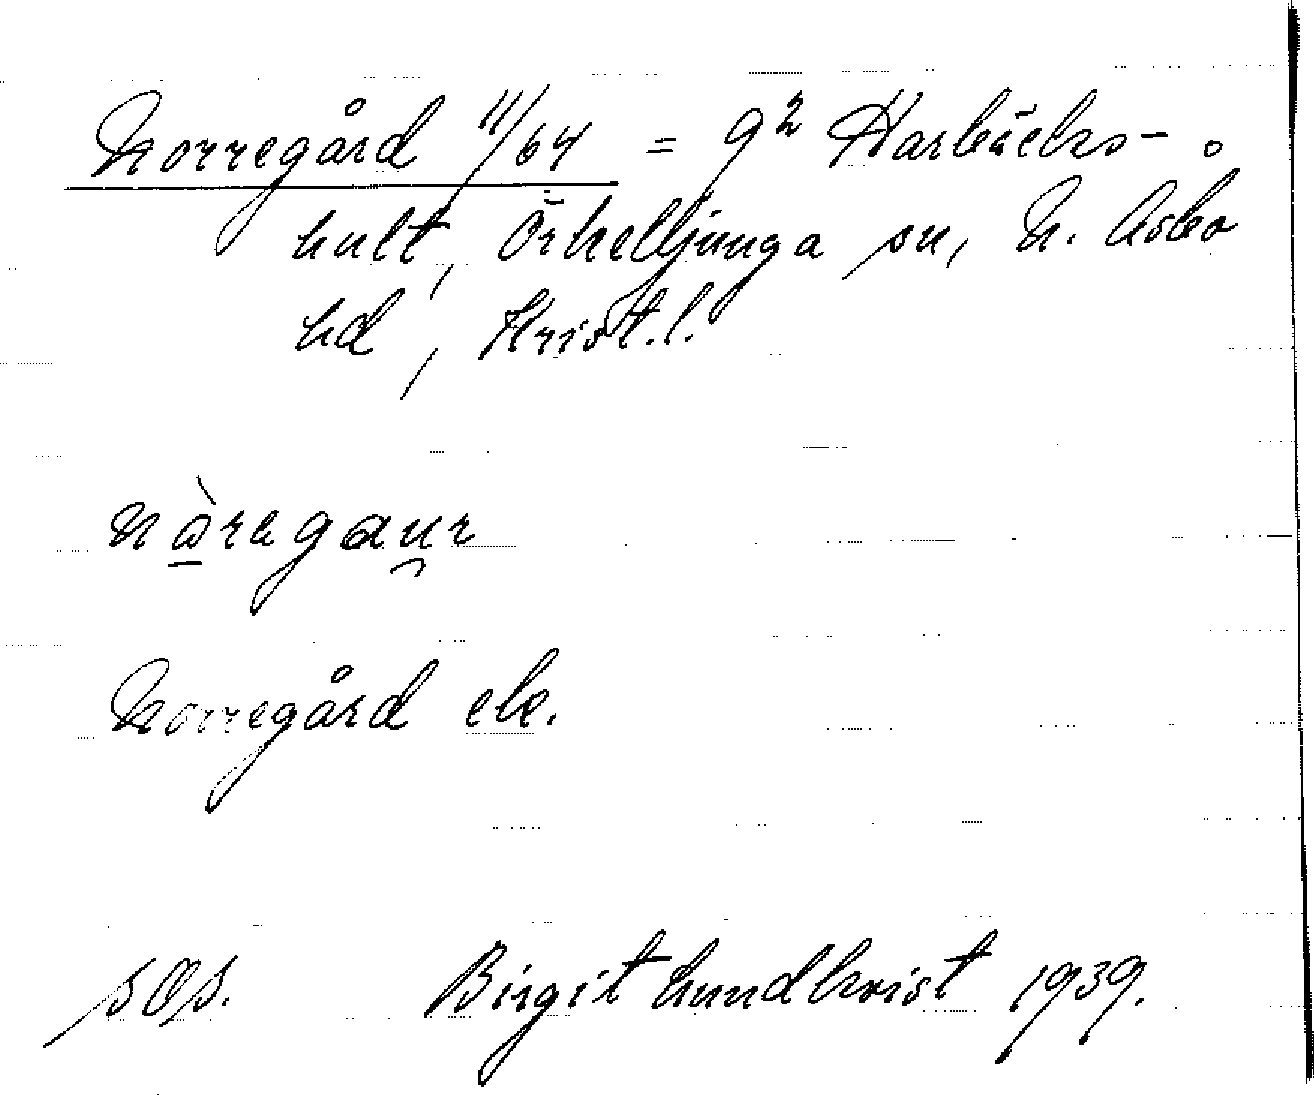 Norregård 11/64 = 9² Harbäcks-
hult, Örkelljunga sn, N. Åsbo
hd, Krist.l.
nàregau̯r
Norregård ek.
Birgit Lundkvist 1939.